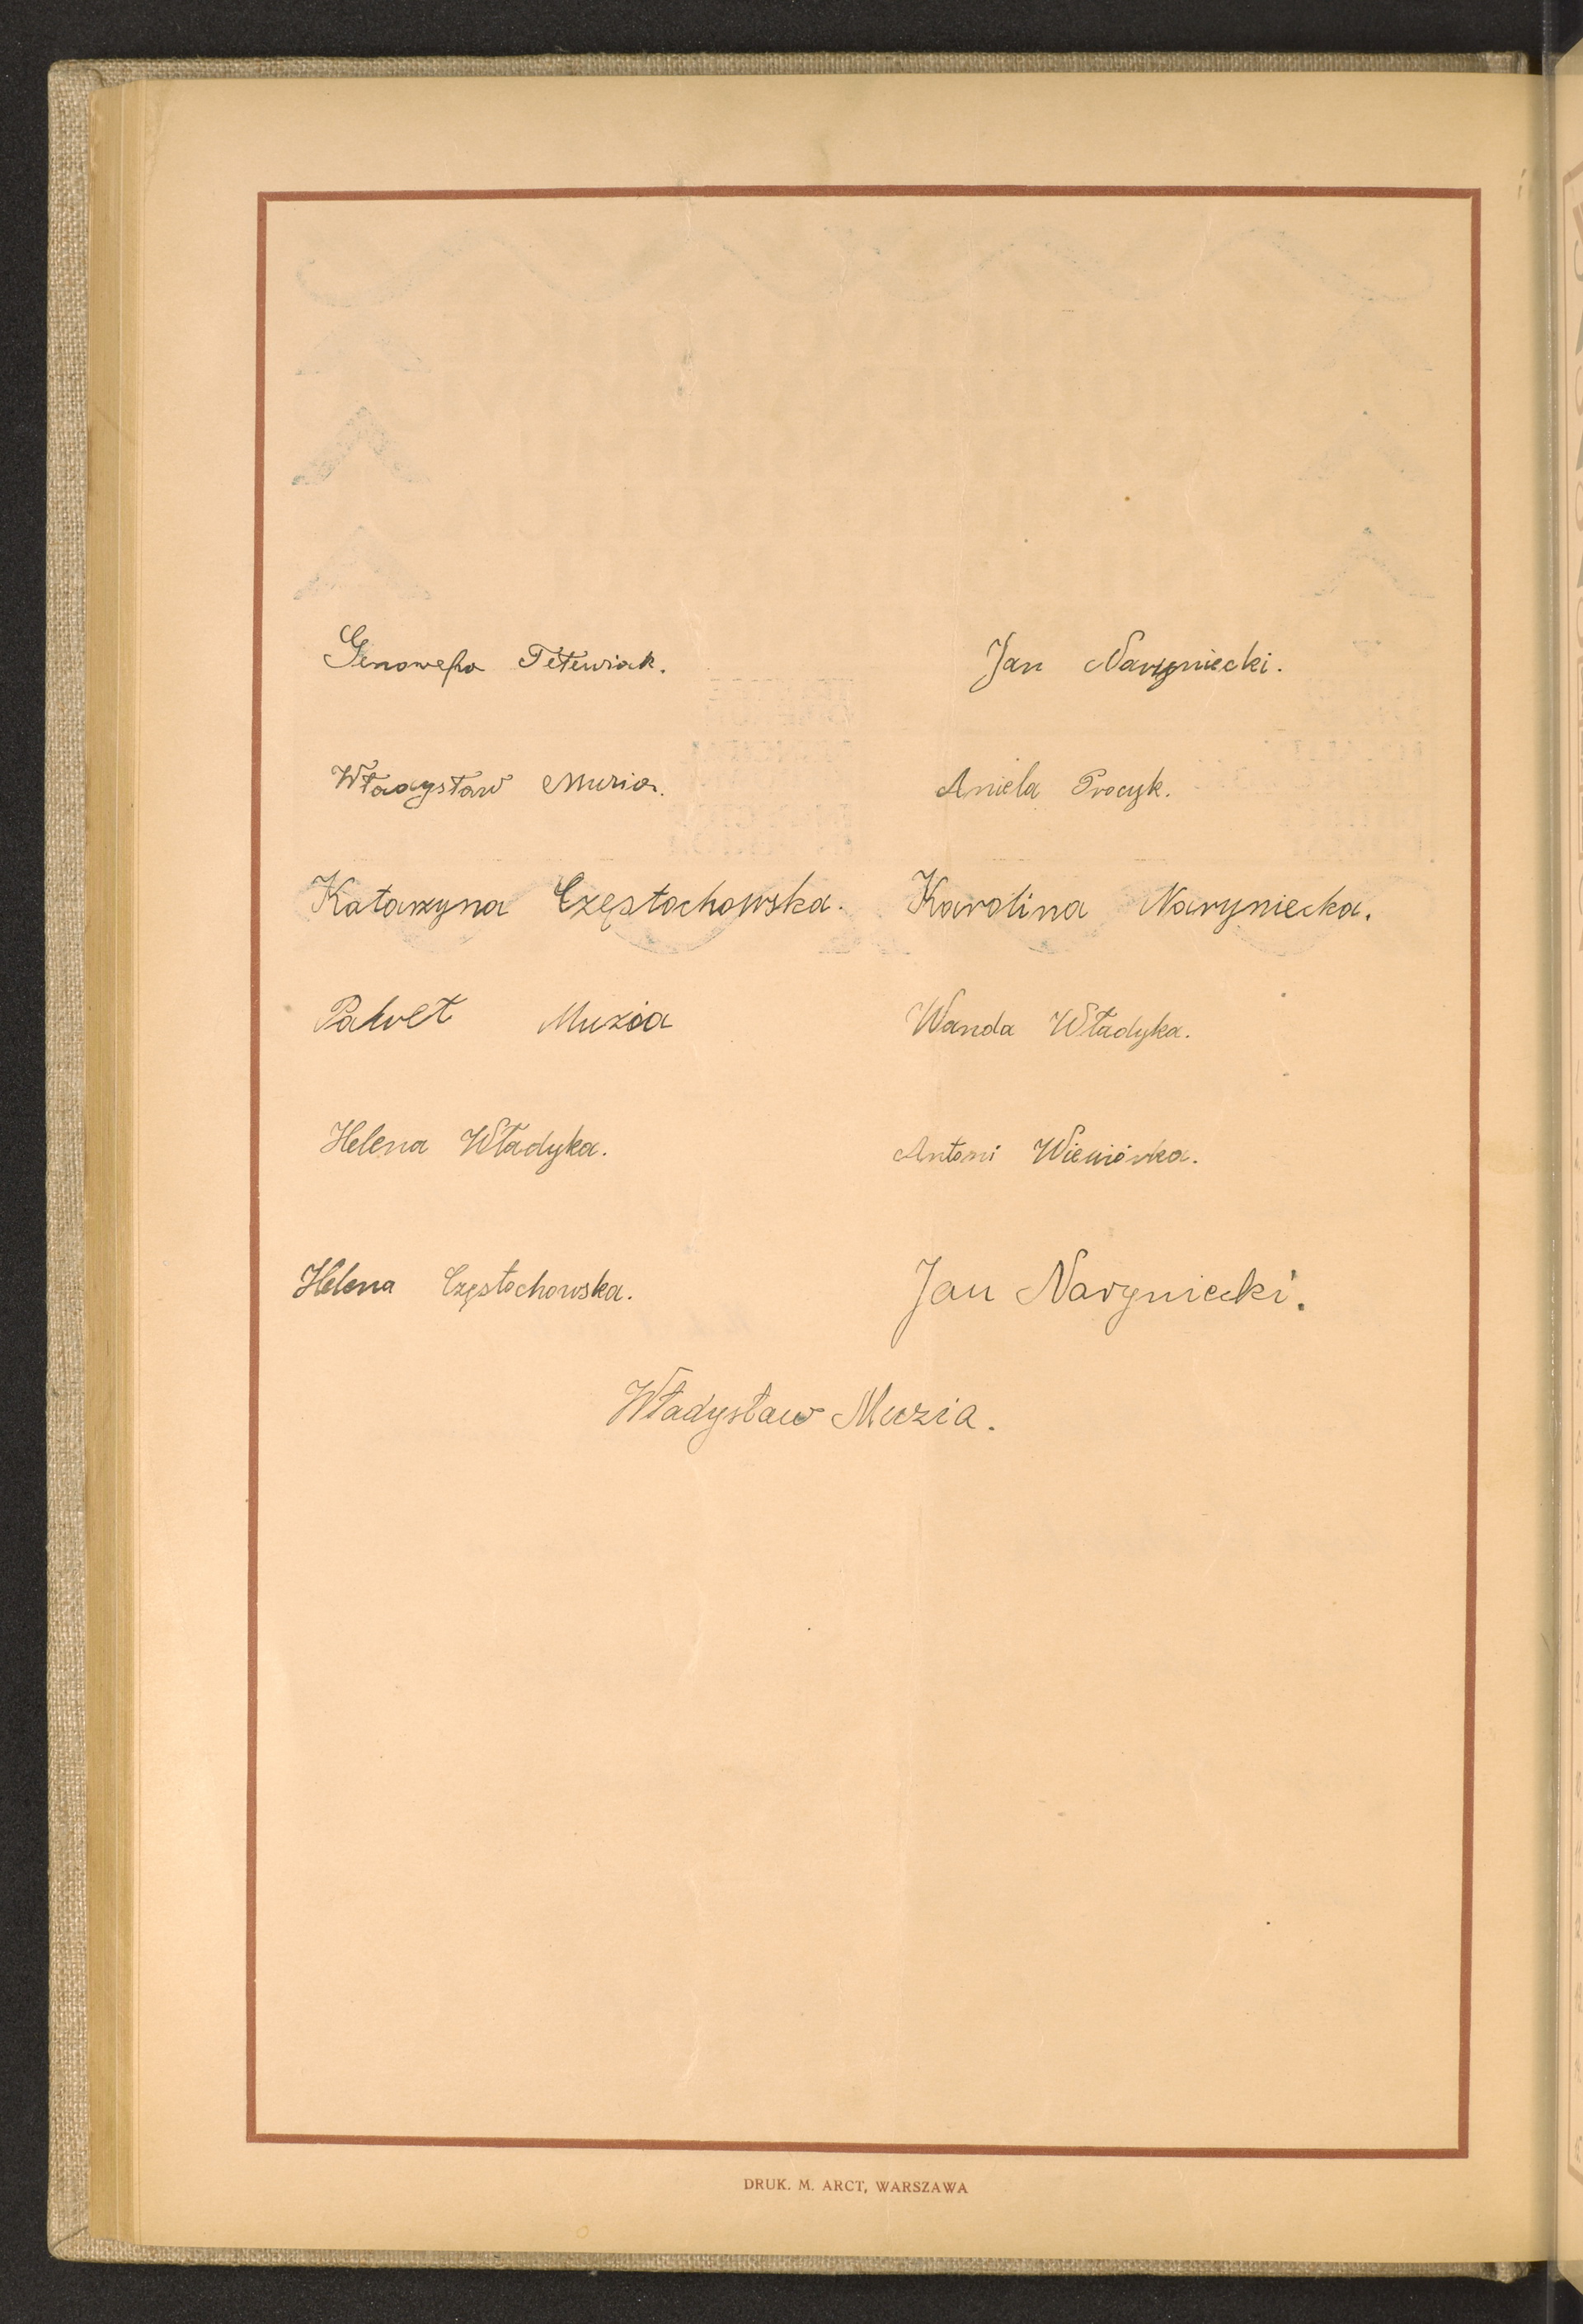 Genowefa Tetewiak. Jan Naryniecki.
Władysław Muzia. Aniela Procyk.
Katarzyna Częstochowska. Karolina Naryniecka.
Paweł Muzia Wanda Władyka.
Helena Władyka. Antoni Wiewiórka.
Helena Częstochowska. Jan Naryniecki.
Władysław Muzia.
DRUK. M. ARCT, WARSZAWA